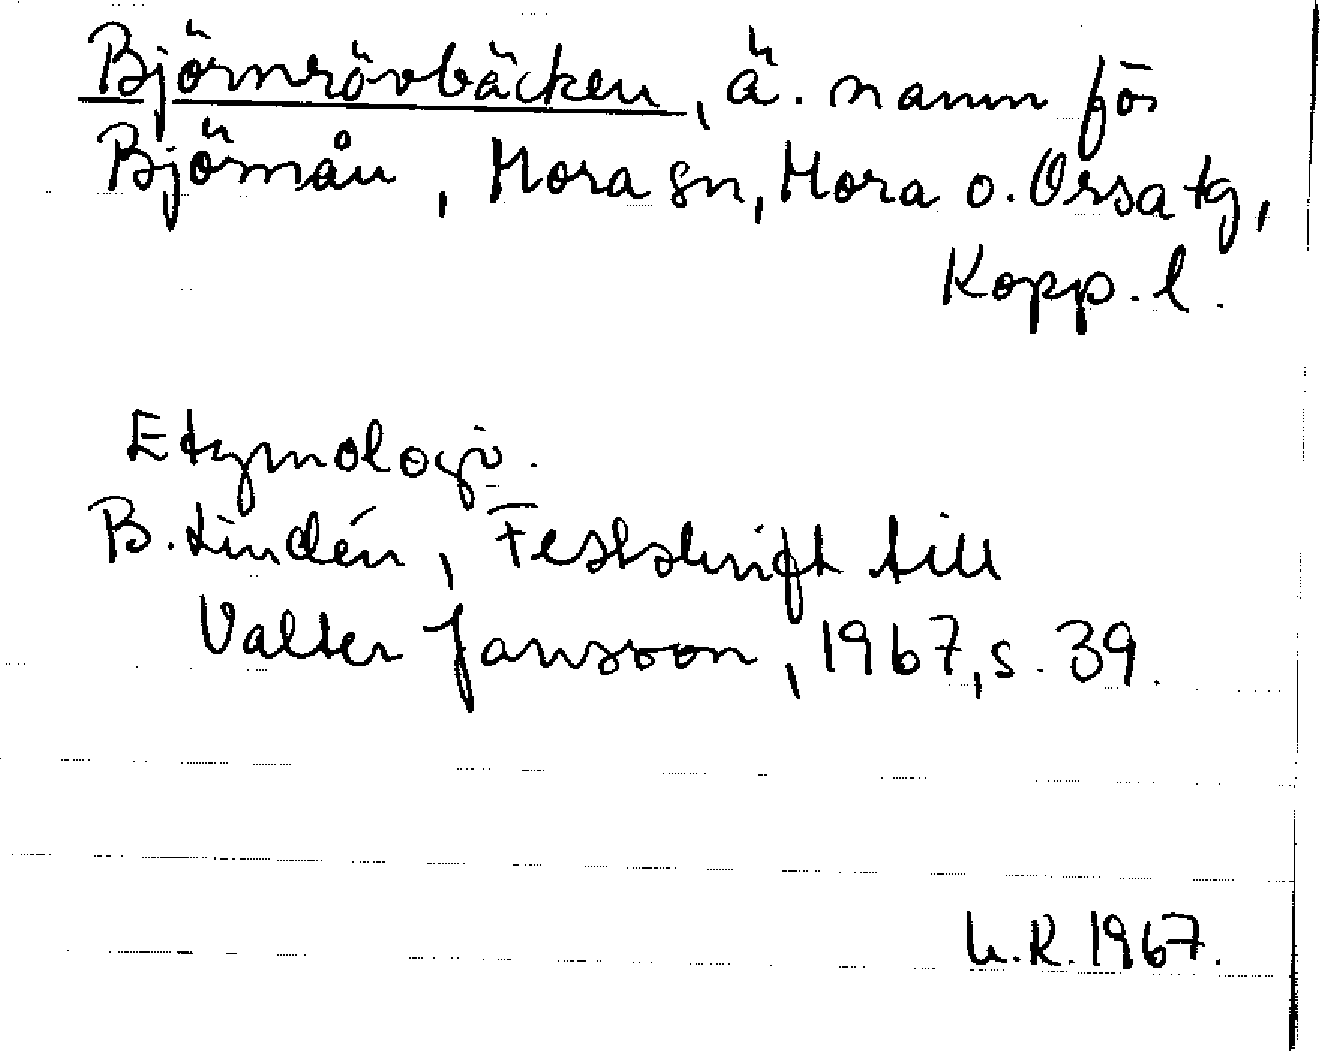 Björnrövbäcken, ä. namn för
Björnån, Mora sn, Mora o. Orsa tg,
Kopp. l.
Etymologi.
B. Lindén, Festskrift till
Valter Jansson, 1967, s. 39.
U.R. 1967.